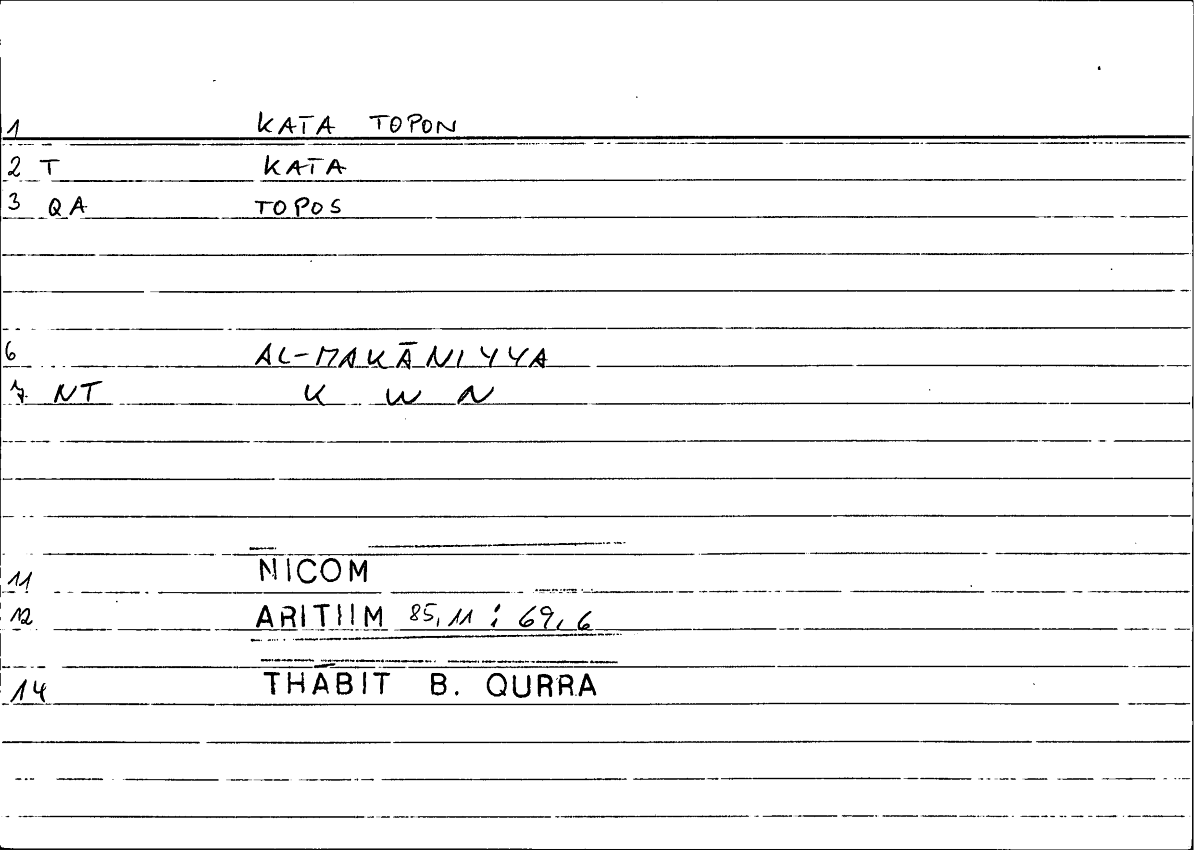 1 KATA TOPON
2 T KATA
3 QA TOPOS
6 AL-MAKĀNIYYA
7 NT K W N
11 NICOM
12 ARITIIM 85,11 : 69,6
14 THĀBIT B. QURRA